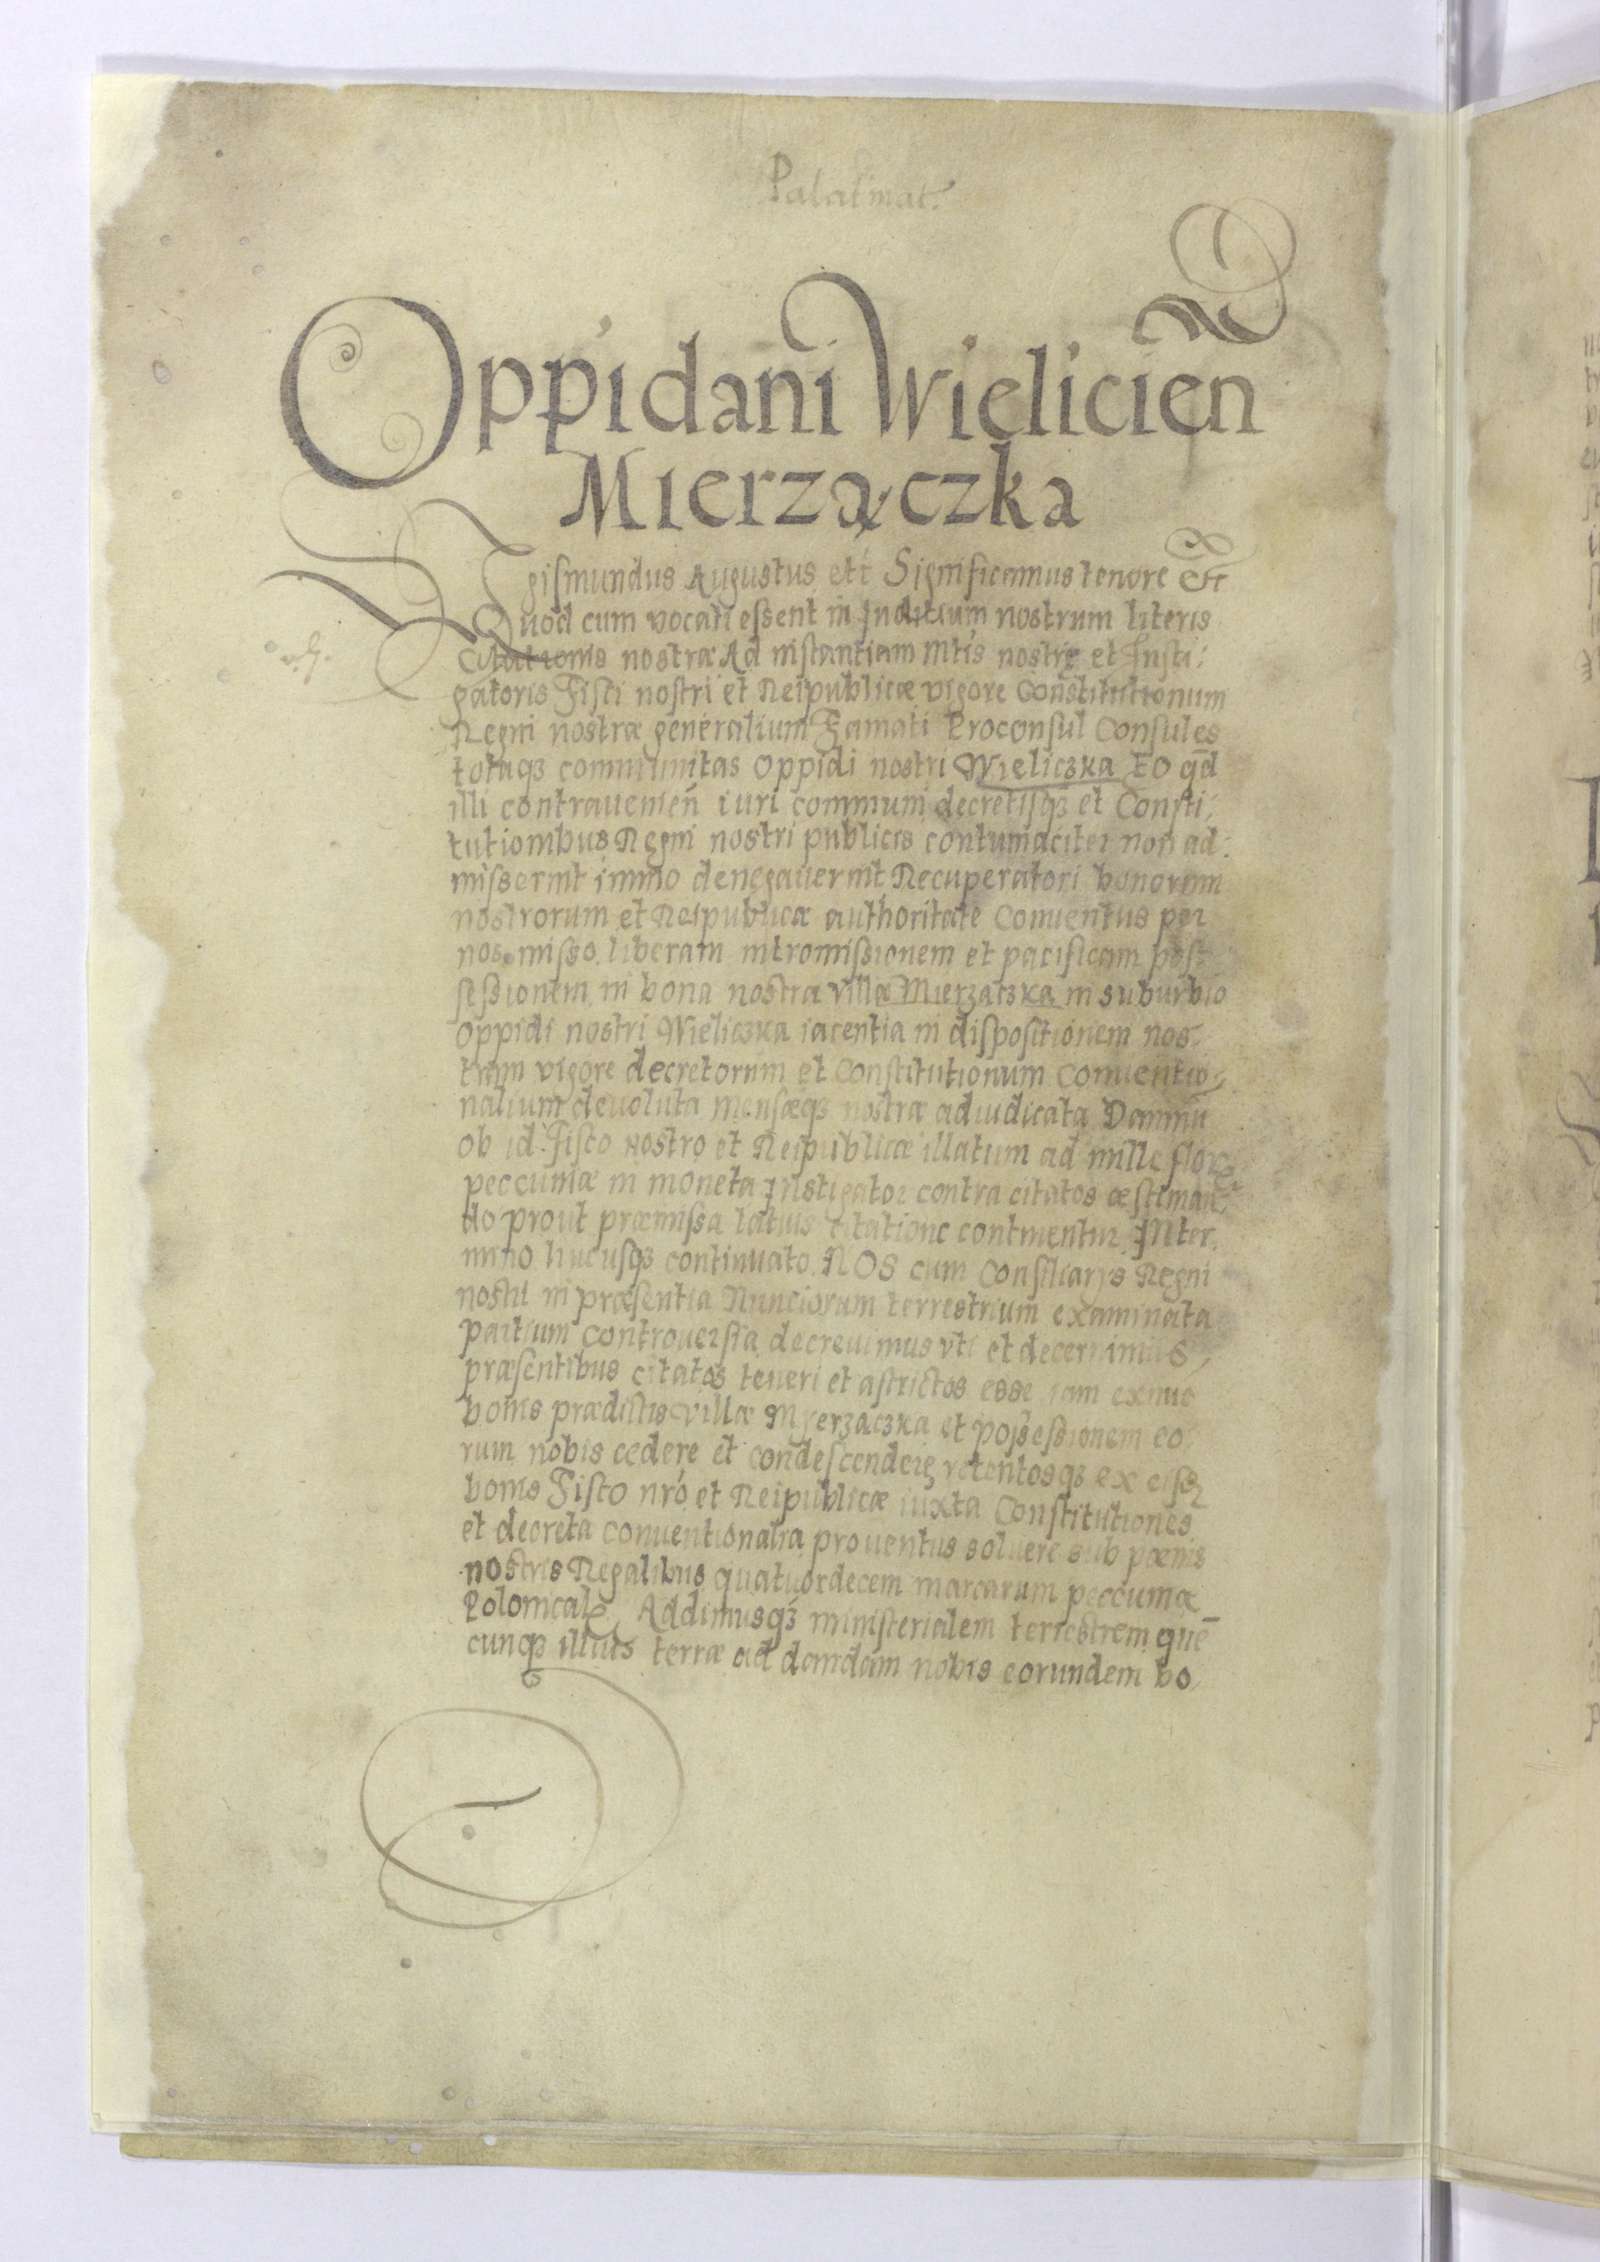 Palatinat.
Oppidani Wielicień
Mierzączka
Sigismundus Augustus etć Significamus tenore etc
Quod cum vocati essent in Juditium nostrum literis
Citationis nostræ Ad instantiam Mtis nostrę et Insti,
gatoris Fisci nostri et Reipublicæ vigore Constitutionum
Regni nostræ generalium Famati Proconsul Consules
totaqȝ communitas Oppidi nostri Wieliczka EO qd
illi contrauenień iuri communi decretisqȝ et Consti,
tutionibus Regni nostri publicis contumaciter non ad,
misserint immo denegauerint Recuperatori bonorum
nostrorum et Reipublicæ authoritate Conuentus per
nos misso liberam intromissionem et pacificam pos,
sessionem in bona nostra villæ Mierzaczka in suburbio
Oppidi nostri Wieliczka iacentia in dispositionem nos,
tram vigore decretorum et Constitutionum Conuentio,
nalium deuoluta mensæqȝ nostræ adiudicata Damnū
ob id Fisco nostro et Reipublicæ illatum ad mille flor
peccuniæ in moneta Instigator contra citatos æstiman,
do prout præmissa latius citatione continentur INter,
mino hucusqȝ continuato NOS cum Consiliarys Regni
nostri in præsentia Nunciorum terrestrium examinata
partium controuersia decreuimus vti et decernimus,
præsentibus citatos teneri et astrictos esse iam exnūc
bonis prædictis villæ Myerzaczka et possessionem eo
rum nobis cedere et condescendere retentosqȝ ex eisdē
bonis Fisco nro et Reipublicæ iuxta Constitutiones
et decreta conuentionalia prouentus soluere sub pœnis
nostris Regalibus quatuordecem marcarum peccuniæ
Polonical Addimusqȝ ministerialem terrestrem quē
cunqȝ illius terræ ad dandam nobis eorundem bo,